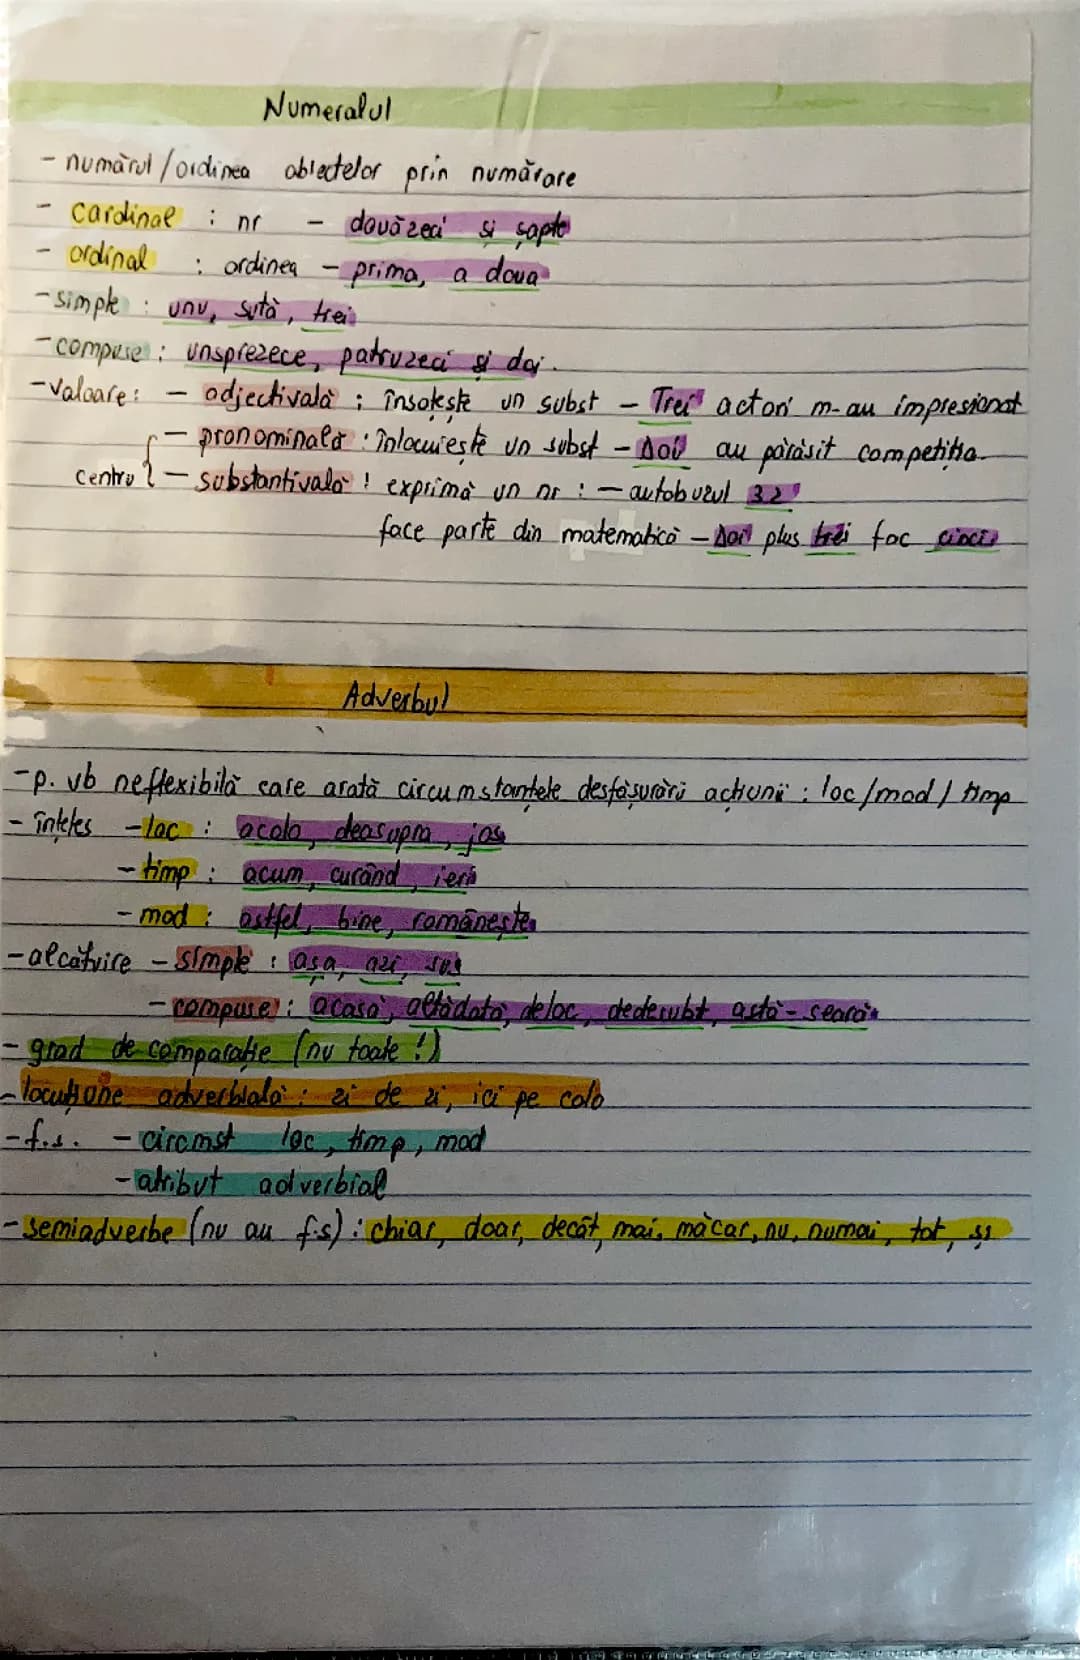 Numeralul
- numărul/ordinea obiectelor prin numărare
- cardinal : nr - douăzeci și șapte
- ordinal : ordinea - prima, a doua
- simple : unu, sută, trei
- compuse : unsprezece, patruzeci și doi.
- valoare: - adjectivală : însoțește un subst - Trei actori m-au impresionat
- pronominală : înlocuiește un subst - Doi au părăsit competiția.
centru { - substantivală ! exprimă un nr : - autobuzul 32
face parte din matematică - Doi plus trei fac cinci
Adverbul
- p. vb neflexibilă care arată circumstanțele desfășurării acțiunii : loc/mod/timp
- înțeles - loc : acolo, deasupra, jos
- timp : acum, curând, ieri
- mod : astfel, bine, românește
- alcătuire - simple : așa, azi, sus
- compuse : acasă, altădată, deloc, dedesubt, astă-seară
- grad de comparație (nu toate !)
- locuțiune adverbială : zi de zi, ici pe colo
- f.s. - circmst loc, timp, mod
- atribut adverbial
- semiadverbe (nu au f.s) : chiar, doar, decât, mai, măcar, nu, numai, tot, și